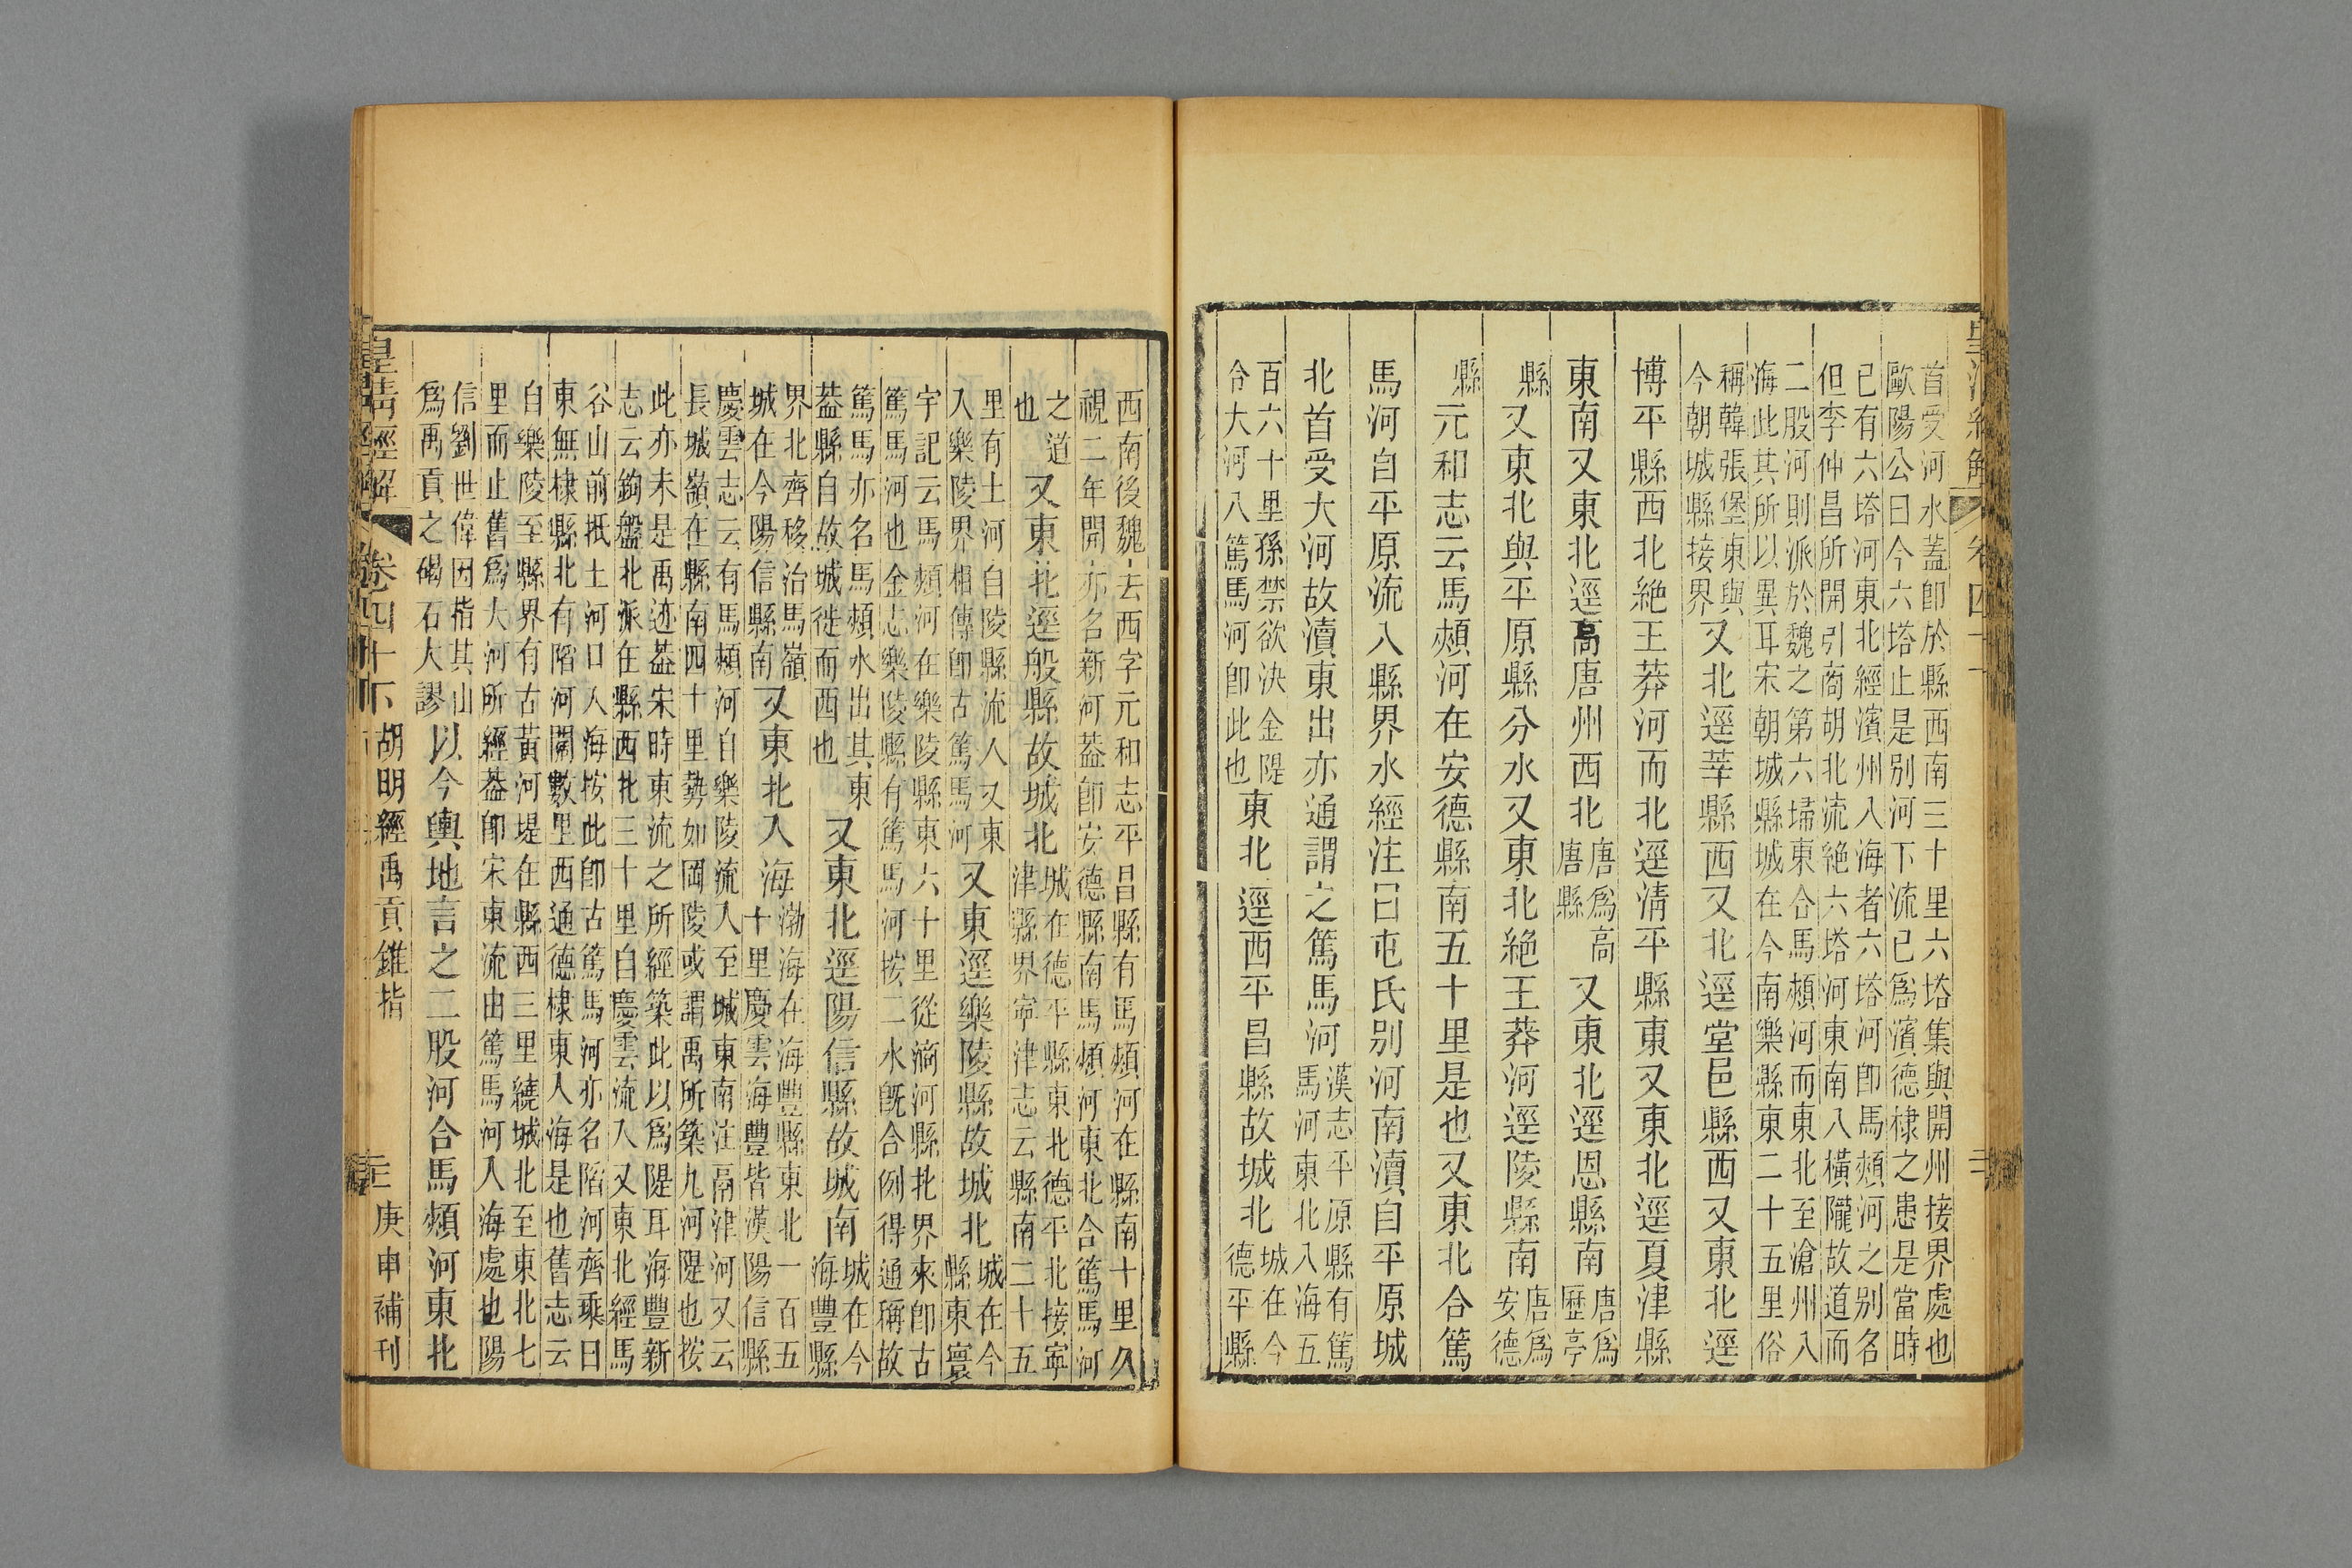 首受河水蓋卽於縣西南三十里六塔集與開州接界處也
歐陽公曰今六塔止是别河下流已爲濱德棣之患是當時
已有六塔河東北經濱州入海者六塔河卽馬頰河之别名
但李仲昌所開引商胡北流絶六塔河東南八橫隴故道而
二股河則派於魏之第六埽東合馬頰河而東北至滄州入
海此其所以異耳宋朝城縣城在今南樂縣東二十五里俗
稱韓張堡東與
今朝城縣接界
又北逕莘縣西又北逕堂邑縣西又東北逕
博平縣西北絶王莽河而北逕淸平縣東又東北逕夏津縣
東南又東北逕高唐州西北
唐爲高
唐縣
又東北逕恩縣南
唐爲
歷亭
縣
又東北與平原縣分水又東北絶王莽河逕陵縣南
唐爲
安德
縣
元和志云馬頰河在安德縣南五十里是也又東北合篤
馬河自平原流入縣界水經注曰屯氏别河南瀆自平原城
北首受大河故瀆東出亦通謂之篤馬河
漢志平原縣有篤
馬河東北入海五
百六十里孫禁欲決金隄
合大河入篤馬河卽此也
東北逕西平昌縣故城北
城在今
德平縣
西南後魏去西字元和志平昌縣有馬頰河在縣南十里久
視二年開亦名新河葢卽安德縣南馬頰河東北合篤馬河
之道
也
又東北逕般縣故城北
城在德平縣東北德平北接寧
津縣界寧津志云縣南二十五
里有土河自陵縣流入又東
入樂陵界相傳卽古篤馬河
又東逕樂陵縣故城北
城在今
縣東寰
宇記云馬頰河在樂陵縣東六十里從滴河縣北界來卽古
篤馬河也金志樂陵縣有篤馬河按二水旣合例得通稱故
篤馬亦名馬頰水出其東
葢縣自故城徙而西也
又東北逕陽信縣故城南
城在今
海豐縣
界北齊移治馬嶺
城在今陽信縣南
又東北入海
渤海在海豐縣東北一百五
十里慶雲海豐皆漢陽信縣
慶雲志云有馬頰河自樂陵流入至城東南注鬲津河又云
長城嶺在縣南四十里勢如岡陵或謂禹所築九河隄也按
此亦未是禹迹葢宋時東流之所經築此以爲隄耳海豐新
志云鉤盤北派在縣西北三十里自慶雲流入又東北經馬
谷山前抵土河口入海按此卽古篤馬河亦名陷河齊乘曰
東無棣縣北有陷河闊數里西通德棣東入海是也舊志云
自樂陵至縣界有古黃河堤在縣西三里繞城北至東北七
里而止舊爲大河所經葢卽宋東流由篤馬河入海處也陽
信劉世偉因指其山
爲禹貢之碣石大謬
以今輿地言之二股河合馬頰河東北
皇淸經解
卷四十下
胡明經禹貢錐指
庚申補刊